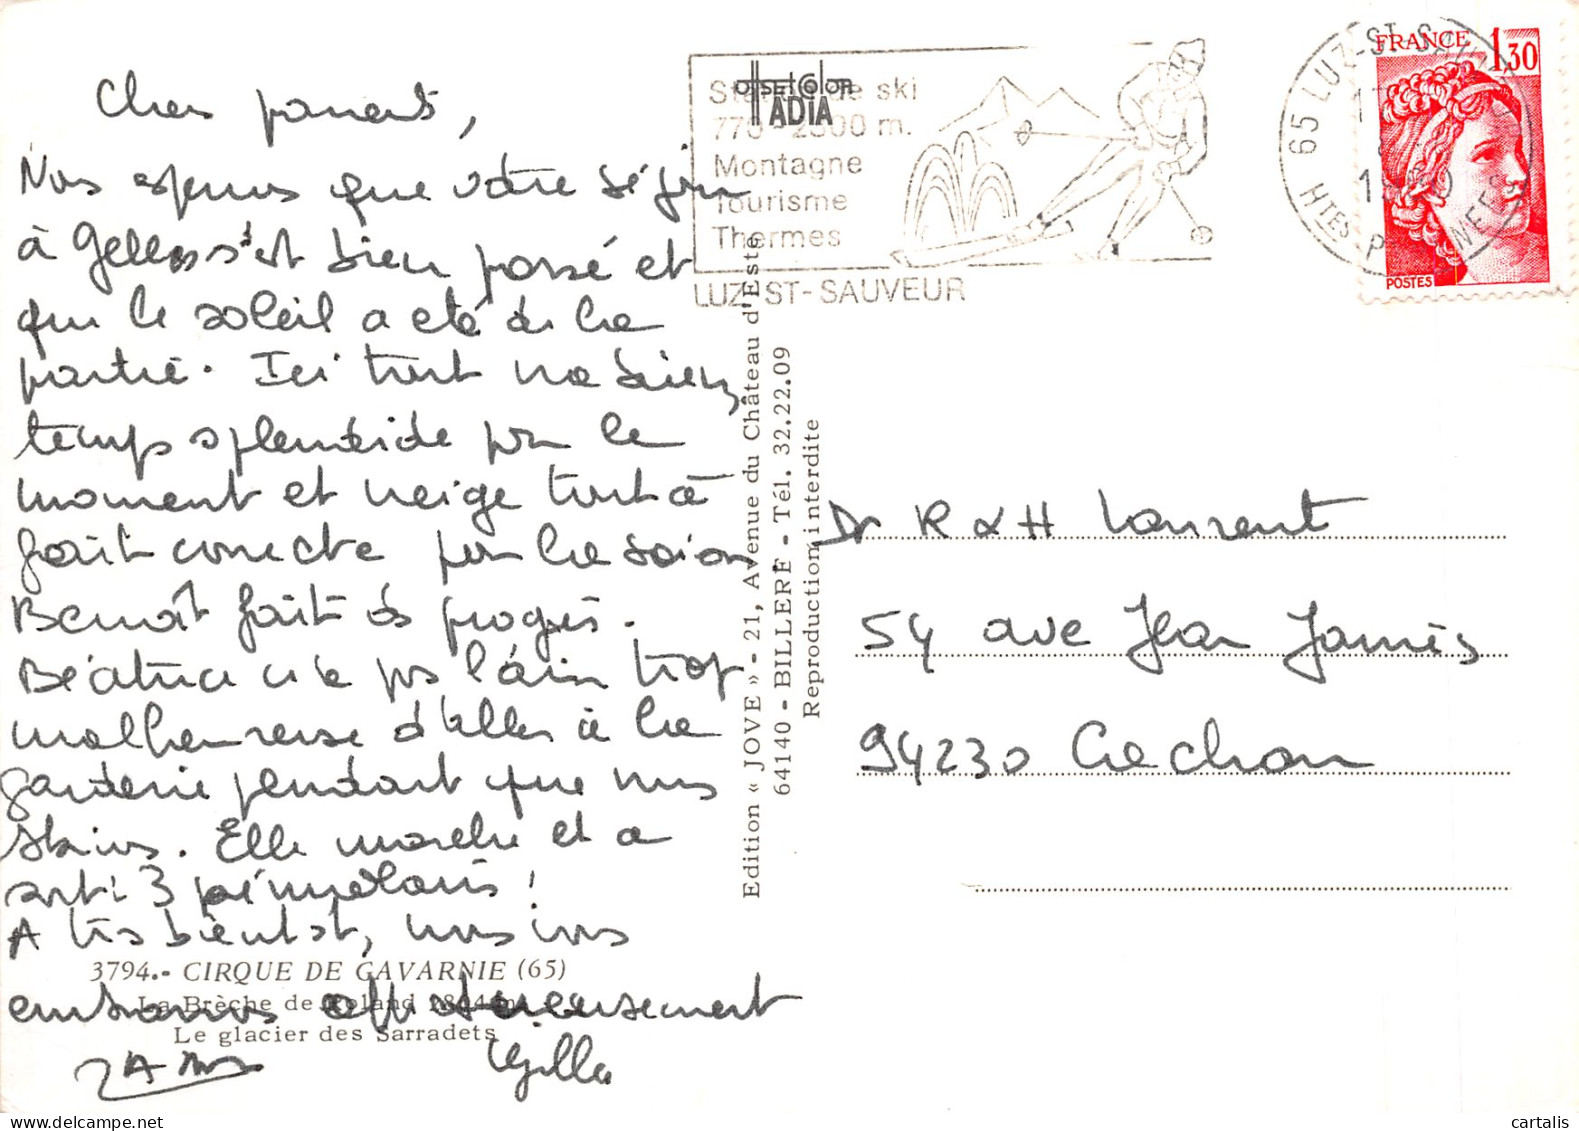 Chers parents,
Nous espérons que votre séjour
à Gelles s'est bien passé et
que le soleil a été de la
partie. Ici tout va bien,
temps splendide pour le
moment et neige tout à
fait correcte pour la saison
Benoît fait des progrès.
Béatrice n'a pas l'air trop
malheureuse d'aller à la
garderie pendant que nous
skions. Elle marche et a
sorti 3 prémolaires !
A très bientôt, nous vous
embrassons affectueusement
Gilla
3794.- CIRQUE DE GAVARNIE (65)
La Brèche de Roland 2804 m
Le glacier des Sarradets
Edition « JOVE » - 21, Avenue du Château d'Este
64140 - BILLERE - Tél. 32.22.09
Reproduction interdite
offset color
ADIA
Station de ski
770-2500 m.
Montagne
Tourisme
Thermes
LUZ-ST-SAUVEUR
65 LUZ-ST-SAUVEUR
HTES PYRENEES
FRANCE 1,30
POSTES
Dr R & H Laurent
54 ave Jean Jaurès
94230 Cachan
cartalis
www.delcampe.net